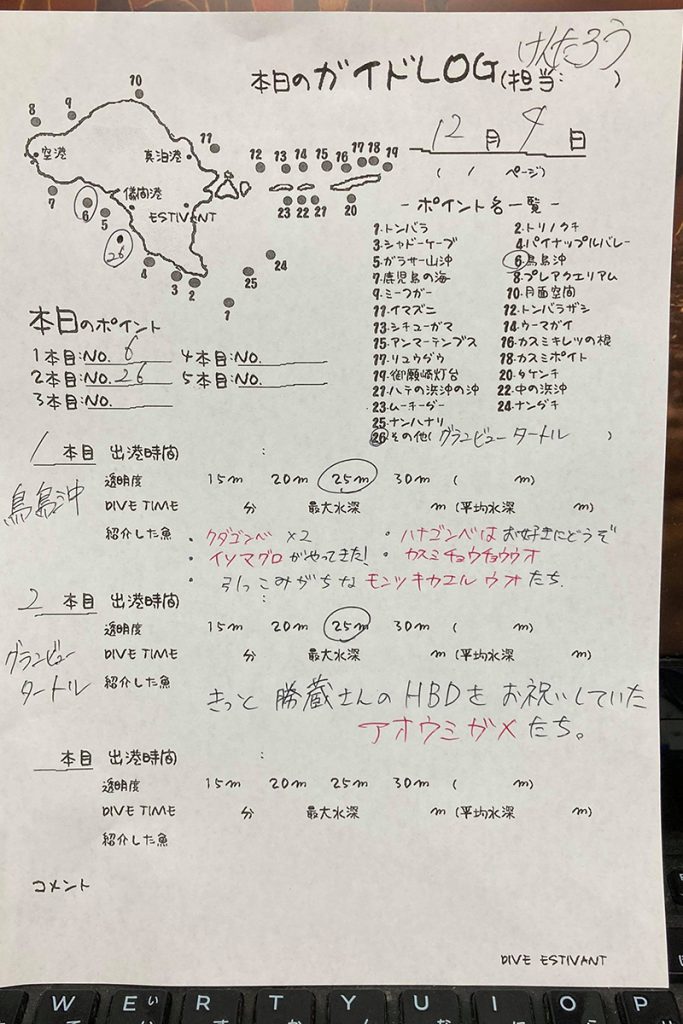 本日のガイドLOG(担当: けんたろう )
12月9日
( 1 ページ)
10
9
8
空港
真泊港
11
7
儀間港
6
5
ESTIVANT
26
4
3
2
1
12 13 14 15 16 17 18 19
23 22 21 20
24
25
- ポイント名一覧 -
1.トンバラ 2.トリノクチ
3.シャドーケーブ 4.パイナップルバレー
5.ガラサー山沖 6.鳥島沖
7.鹿児島の海 8.プレアクエリアム
9.ミーフガー 10.月面空間
11.イマズニ 12.トンバラザシ
13.シチューガマ 14.ウーマガイ
15.アンマーテンプス 16.カスミキレツの根
17.リュウグウ 18.カスミポイト
19.御願崎灯台 20.タケンチ
21.ハテの浜沖の沖 22.中の浜沖
23.ムーチーグー 24.ナングチ
25.ナンハナリ
26.その他( グランビュータートル )
本日のポイント
1本目:NO. 6 4本目:NO.
2本目:NO. 26 5本目:NO.
3本目:NO.
1 本目 出港時間 :
鳥島沖
透明度 15m 20m 25m 30m ( m)
DIVE TIME 分 最大水深 m (平均水深 m)
紹介した魚 ・クダゴンベ ×2 ・ハナゴンベはお好きにどうぞ
・イソマグロがやってきた! ・カスミチョウチョウウオ
・引っこみがちなモンツキカエルウオたち.
2 本目 出港時間 :
グランビュー
タートル
透明度 15m 20m 25m 30m ( m)
DIVE TIME 分 最大水深 m (平均水深 m)
紹介した魚
きっと勝蔵さんのHBDをお祝いしていた
アオウミガメたち。
本目 出港時間 :
透明度 15m 20m 25m 30m ( m)
DIVE TIME 分 最大水深 m (平均水深 m)
紹介した魚
コメント
DIVE ESTIVANT
W E R T Y U I O P